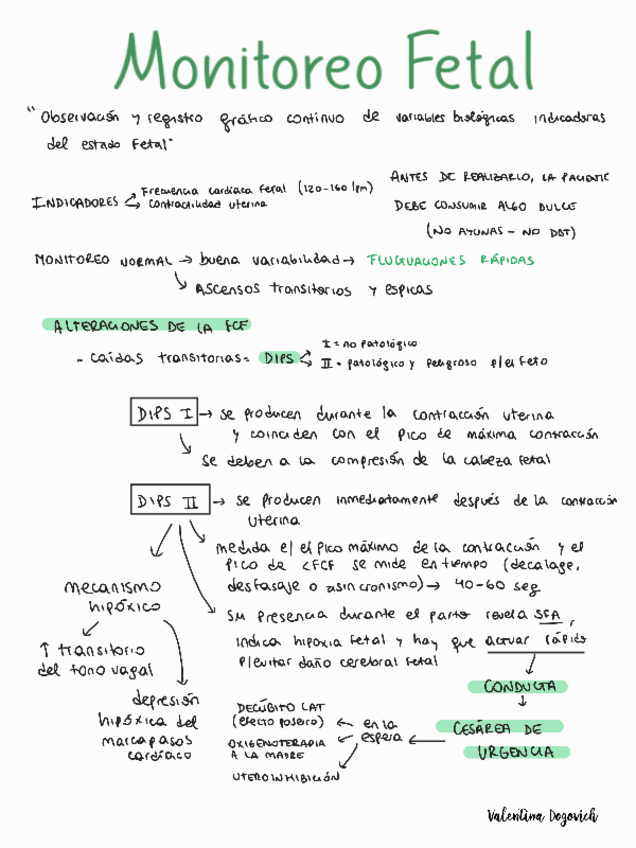 Monitoreo Fetal
"Observación y registro gráfico continuo de variables biológicas indicadoras
del estado Fetal"
INDICADORES
Frecuencia cardíaca fetal (120-160 lpm)
Contractilidad uterina
ANTES DE REALIZARLO, LA PACIENTE
DEBE CONSUMIR ALGO DULCE
(NO AYUNAS - NO DBT)
MONITOREO NORMAL → buena variabilidad → FLUCTUACIONES RÁPIDAS
ASCENSOS transitorios y espicas
ALTERACIONES DE LA FCF
- Caídas transitorias = DIPS
I = no patológico
II = patológico y peligroso p/el feto
DIPS I → se producen durante la contracción uterina
y coinciden con el pico de máxima contracción
Se deben a la compresión de la cabeza fetal
DIPS II → se producen inmediatamente después de la contracción
uterina
medida e/ el pico máximo de la contracción y el
pico de <FCF se mide en tiempo (decalage,
desfasaje o asincronismo) → 40-60 seg
Su presencia durante el parto revela SFA,
indica hipoxia fetal y hay que actuar rápido
p/evitar daño cerebral fetal
mecanismo
hipóxico
↑ transitorio
del tono vagal
depresión
hipóxica del
marcapasos
cardíaco
CONDUCTA
CESÁREA DE
URGENCIA
en la
espera
DECÚBITO LAT
(efecto posero)
OXIGENOTERAPIA
A LA MADRE
UTEROINHIBICIÓN
Valentina Dogovich